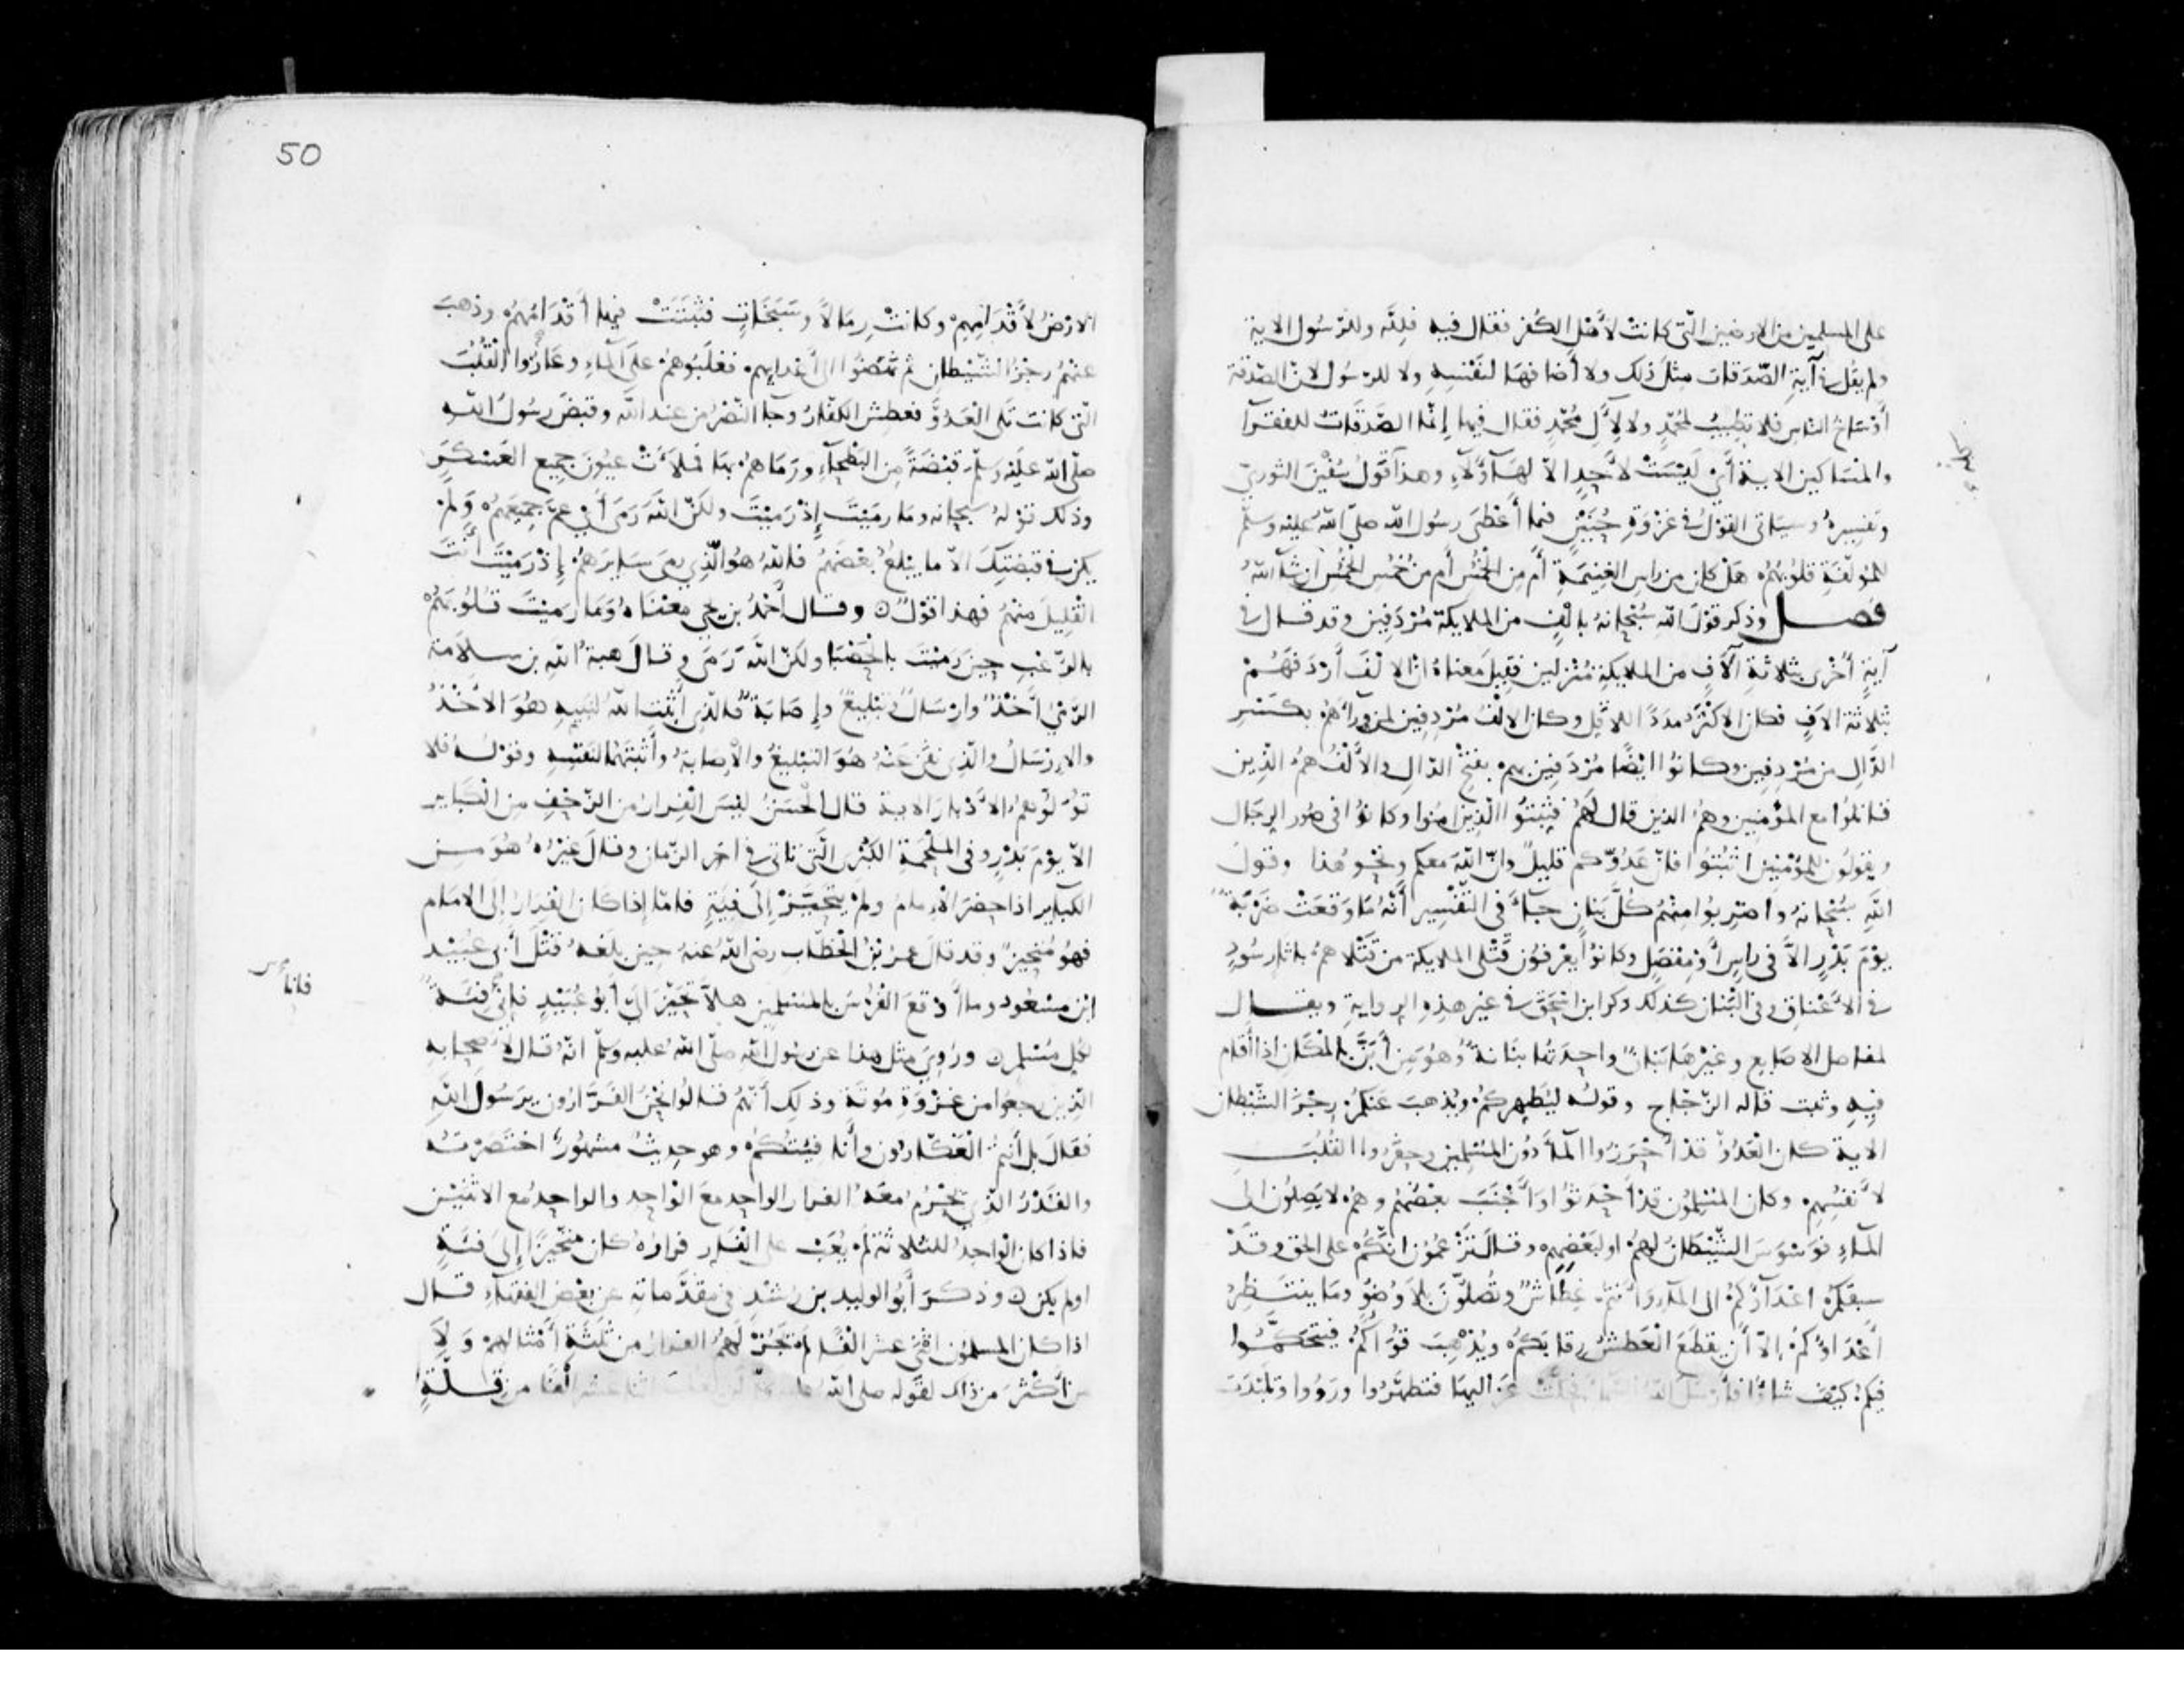 على المسلمين من الارضين الّتى كانتْ لأَهْلِ الكُفر فقال فيه فلِلّه وللرّسُول الاية
ولم يقل في آيةِ الصّدَقات مثلَ ذلك ولا أَضافهَا لنَفْسِهِ ولا للرّسُول لانّ الصّدَقة
أَوْسَاخُ الناس فلا تطِيبُ لمُحمّدٍ ولا لِآلِ مُحمّدٍ فقال فيها إنّمَا الصَّدَقَاتُ للفقرآ
والمسَاكين الاية أَىْ لَيْسَتْ لأَحدٍ الاّ لهَآؤُلآءِ وهذا قَولُ سُفْيٰنَ الثورىّ
وتفسيرهُ وسياتى القوْلُ فى غزْوَةِ حُنَيْنٍ فيما أَعْطَى رسُول الله صلّى الله عليْه وسلّم
للمُؤلّفَةِ قلُوبُهُمْ هَلْ كان من راسِ الغنِيمَةِ أَم مِنَ الخُمُسِ أَم من خُمُسِ الخُمُسِ ان شآ اللهُ
فصل وذكر قوْلَ اللهِ سُبْحانهُ بالْفٍ من الملايكة مُرْدَفِين وقد قال فى
آيةٍ أُخْرى بثلاثةِ آلآفٍ من الملايكةِ مُنْزلين فقِيلَ معناهُ انّ الالْفَ أَرْدَفَهُمْ
بثلاثة الافٍ فكان الاكْثَرُ مدَدًا للاقلّ وكان الالْفُ مُرْدِفين لمن ورآءَهُمْ بكَسْرِ
الدّالِ من مُرْدِفين وكانوُا ايْضًا مُرْدَفِين بهم بفتْحِ الدّالِ والأَلْفُ همُ الّذِين
قاتلُوا مع المؤْمنِين وهمُ الذين قال لهُمْ فثبّتُوا الّذِين امنُوا وكانوُا فى صُور الرجَال
ويقولُون للمُؤْمنِينَ اثبُتوُا فانّ عدُوّكم قليلٌ وانّ اللهَ معكم ونحْو هٰذا وقولَ
اللهِ سُبْحانهُ واضرِبُوا مِنْهُمْ كُلَّ بَنانٍ جآءَ فى التّفْسِير أَنّهُ مَا وَقعَتْ ضَرْبَةٌ
يوْمَ بَدْرٍ الاَّ فى راسٍ أَوْ مِفْصَلٍ وكانوُا يَعْرِفوُن قَتْلى الملايكة من قَتْلاهمُ باثارٍ سُودٍ
فى الأَعْناقِ وفى البنَان كذلك ذكر ابن اسْحٰقَ فى غير هذِهِ الرِوايةِ ويقال
لمفاصل الاصَابِعِ وغيْرِهَا بَنانٌ واحِدَتُها بنَانةٌ وُهُوَ مِن أَبَنَّ بالْمكَان اذا أَقام
فيهِ وثبت قاله الزّجّاج وقوله ليُطهِركُمْ ويُذهبَ عَنْكُمْ رِجْزَ الشّيْطان
الاية كان الْعَدُوُّ قدْ أَحْرَزُوا المآءَ دُون المُسْلِمِين وحفَرُوا القُلُبَ
لأَنفُسِهِم وكان المُسْلِمُون قدْ أَحْدَثوُا وَأَجْنَبَ بعْضُهُمْ وهُمْ لا يَصِلوُن الى
المآءِ فوَسْوَسَ الشّيْطَانُ لهُمْ او لبَعْضِهِم وقال تَزْعُمُون انّكُمْ على الحق وقَدْ
سبقَكُمْ اعْدَآؤكمُ الى المآءِ وَأَنتُم عِطَاشٌ وتُصلُّوْنَ بلاَ وُضُوٍ ومَا ينتَظِرُ
أَعْدَاوُكمُ الاّ أَنْ يقطَعَ الْعَطَشُ رقابَكُمْ ويُذْهِبَ قُوَاكُمْ فيتحَكّمُوا
فيكمُ كيفَ شاءُوا فأَرْسَلَ اللهُ السمآءَ فحلّتْ عزَاليهَا فتطهّرُوا ورَوُوا وتلبّدَتِ
50
الارْضُ لأَقْدَامِهِمْ وكانتْ رِمَالاً وسَبَخَاتٍ فثبَتَتْ فيها أَقْدَامُهُمْ وذهبَ
عنْهُمُ رِجْزُ الشّيْطانِ ثم نَهَضُوا الى أَعْدايِهِم فغلَبُوهُمْ على المآءِ وعَاروُا القُلُبَ
الّتى كانت تَلى الْعَدُوّ فعطِش الكفّارُ وجآ النّصْرُ من عند اللّه وقبَضَ رسُولُ اللهِ
صلّى الله عليْه وسلّم قبْضَةً مِن البَطْحآءِ ورَمَاهُمْ بهَا فملأَتْ عيُونَ جمِيع العَسْكَرِ
وذلك قوْلهُ سبحانه ومَا رمَيْتَ إذْ رَميْتَ ولكنّ اللهَ رَمَى أَىْ عمّ جمِيعَهُمْ وَلَمْ
يكن فى قبضَتِكَ الاّ ما يبْلغُ بعْضَهُمْ فاللهُ هُو الّذِى رمَى سَايرَهُمْ إذْ رَمَيْتَ أَنتَ
القلِيلَ مِنْهُمْ فهذا قوْلٌ وقال أَحْمَدُ بن يحيى معْناهُ وَمَا رَميْتَ قلُوبَهُمْ
بالرّعْبِ حِينَ رَميْتَ بالْحَصْبَآ ولكنّ اللهَ رَمَى وقالَ هبةُ اللهِ بن سلاَمَة
الرّمْىُ أَخْذٌ وارْسَالٌ وتبْلِيغٌ وإصَابَةٌ فالّذِى أَثْبَتَ اللهُ لنبِيهِ هُوَ الأَخْذُ
والارْسَالُ والّذِى نفَى عَنْهُ هُوَ التبْلِيغُ والاِصَابَةُ وأَثْبَتَهُمَا لنَفْسِهِ وقوْلهُ فلا
تُوَلّوُهمُ الأَدْبارَ الاية قال الْحَسَنُ ليْسَ الْفِرارُ من الزّحْفِ مِن الْكبَاير
الاّ يوْمَ بَدْرٍ وفى المَلْحمَةِ الكُبْرى الّتى تاتى فى آخر الزّمان وقال غيْرُهُ هُوَ مِن
الكبَايِر اذا حضَرَ الاِمام ولمْ يتَحَيّزْ إلى فِيَةٍ فامّا إذا كان الفِرارُ إلى الامَام
فهُو مُتحيزٌ وقد قال عمرُ بنُ الْخطّاب رضى اللهُ عنْهُ حين بلغهُ قَتْلُ أَبى عُبَيْد
ابن مسْعُود وما أَوْقعَ الفُرْسُ بالمُسْلِمين هلاَّ تَحَيّزَ الَىّ أَبُو عُبَيْدٍ فانّى فِئَةٌ
فانا
لكل مُسْلِم ورُوِىَ مثل هذا عن رسُول الله صلّى اللهُ عليه وسلّم انّهُ قال لأَصْحابِه
الّذِين رجعُوا من غزْوَةِ مُوتَةَ وذلِك أَنّهُمْ قالوُا نحْنُ الفَرّارُون يرَسُولَ اللهِ
فقالَ بل أَنتم الْعَكّارُون وأَنا فِيَتكمُ وهو حدِيثٌ مشهُورٌ اختصَرْتُه
والقَدْرُ الّذِى يحْرُمُ معَهُ الفرار الواحد معَ الْوَاحِدِ والواحِدُ مع الاثنَيْنِ
فاذا كان الْواحِدُ للثلاثةِ لَمْ يُعَبْ على الْفَارّ فرارُهُ كان مُتحيّزًا إلى فِئَةٍ
اولم يكن وذكَرَ أَبُو الوليد بن رُشْدٍ فى مقدّماتهِ عن بعْضِ الفقهآءِ قال
اذا كان المسلمُون اثْنَى عشر الْفًا لمْ تَجُزْ لهُمْ الفرارُ من ثلٰثةِ أَمْثالِهمْ وَلاَ
من أَكثرَ من ذلك لقوْله صلى اللهُ عليه وسلّم لن تغلَبَ اثنا عشر أَلْفًا من قلّةٍ